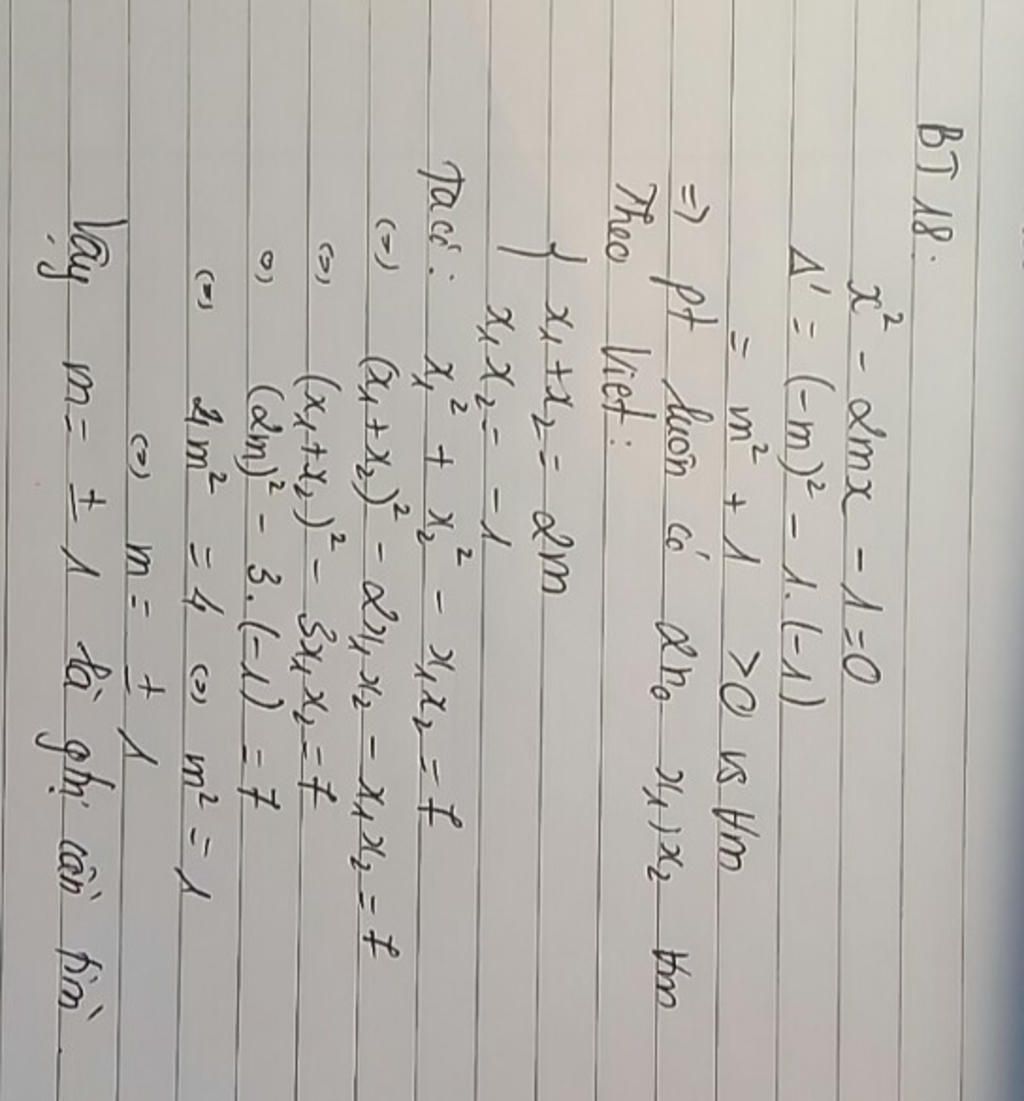 BT 18:
x² - 2mx - 1 = 0
Δ' = (-m)² - 1.(-1)
= m² + 1 > 0 vs ∀m
=> pt luôn có 2no x₁, x₂ ∀m
Theo Viet:
{ x₁ + x₂ = 2m
x₁x₂ = -1
Ta có: x₁² + x₂² - x₁x₂ = 7
(=) (x₁ + x₂)² - 2x₁x₂ - x₁x₂ = 7
(=) (x₁ + x₂)² - 3x₁x₂ = 7
(=) (2m)² - 3.(-1) = 7
(=) 4m² = 4 (=) m² = 1
(=) m = ± 1
Vậy m = ± 1 là gtrị cần tìm.